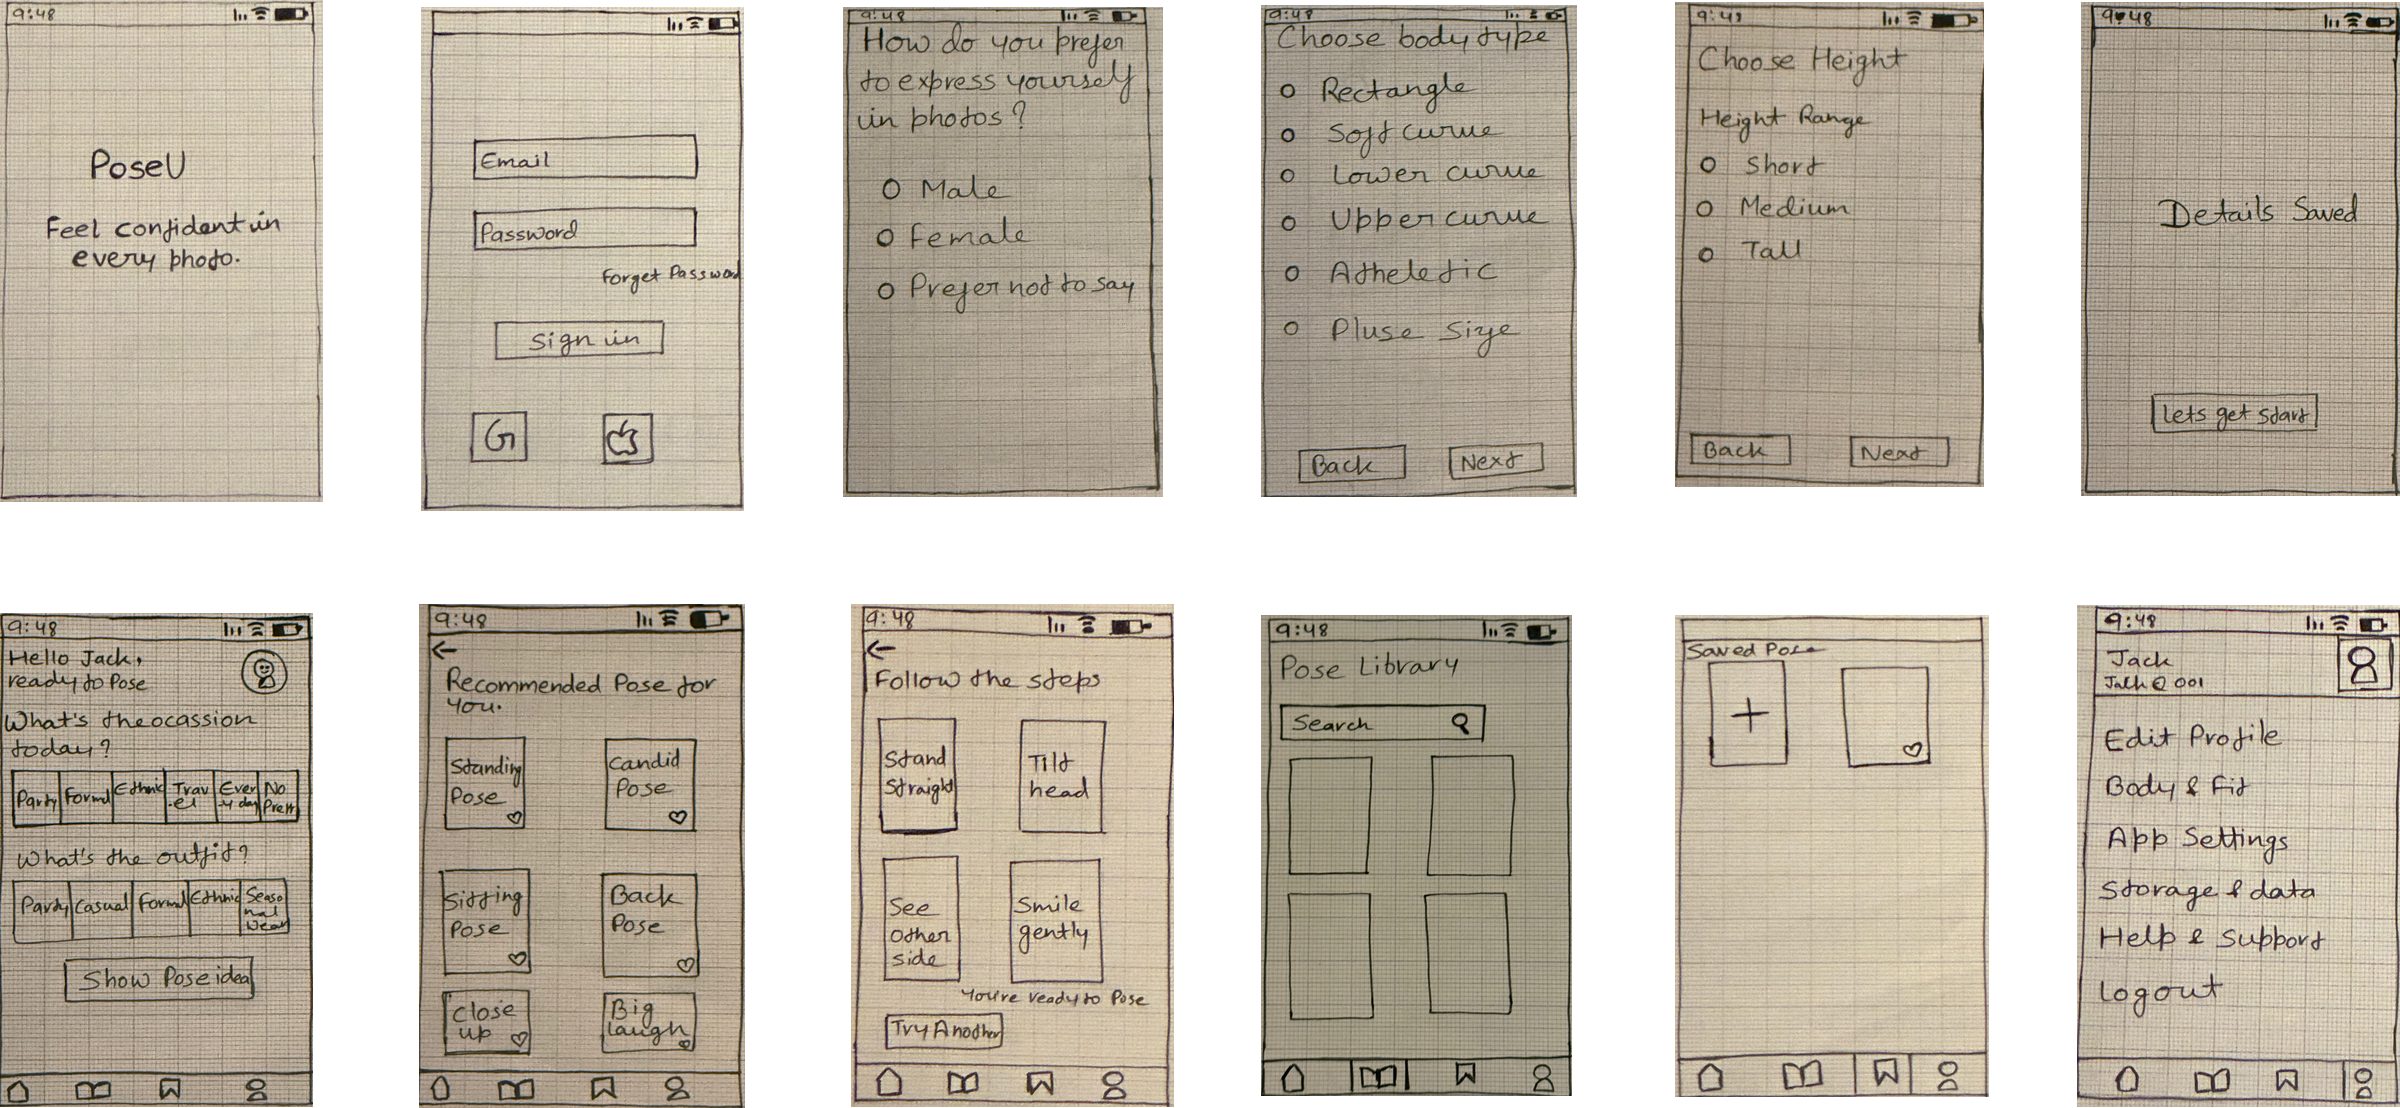 9:48
PoseU
Feel confident in
every photo.
Email
Password
Forget Password
Sign in
G
9:48
How do you prefer
to express yourself
in photos?
Male
Female
Prefer not to say
9:48
Choose body type
Rectangle
Soft curve
Lower curve
Upper curve
Atheletic
Pluse size
Back
Next
9:48
Choose Height
Height Range
Short
Medium
Tall
Back
Next
9:48
Details Saved
Lets get start
9:48
Hello Jack,
ready to Pose
What's the ocassion
today?
Party
Formal
Ethnic
Trav
el
Ever
y day
No
What's the outfit?
Party
Casual
Formal
Ethnic
Seaso
nal
wear
Show Pose idea
9:48
Recommended Pose for
you.
Standing
Pose
Candid
Pose
Sitting
Pose
Back
Pose
Close
up
Big
laugh
9:48
Follow the steps
Stand
Straight
Tilt
head
See
other
side
Smile
gently
You're ready to Pose
Try Another
9:48
Pose Library
Search
Saved Pose
9:48
Jack
Edit Profile
Body & Fit
App Settings
Storage & data
Help & Support
Logout